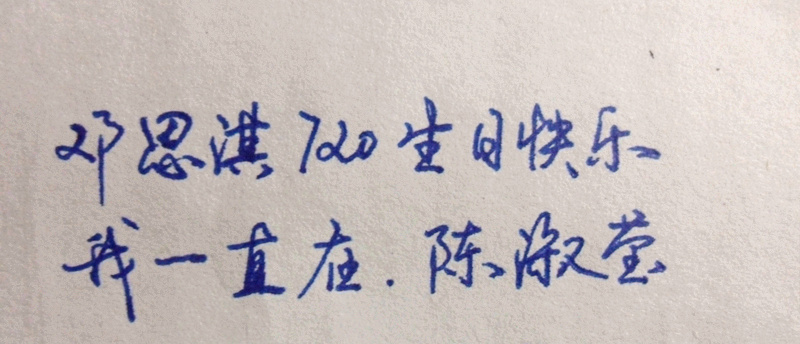 邓思淇720生日快乐
我一直在.陈淑莹